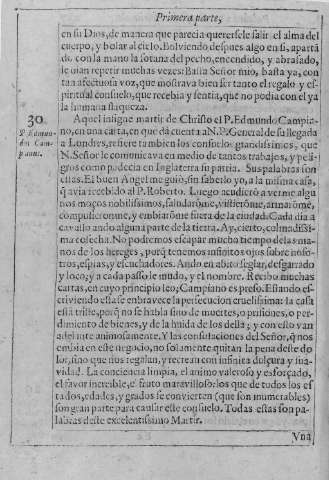 Primera parte,
en su Dios, de manera que parecia querersele salir el alma del
cuerpo, y bolar al cielo. Bolviendo despues algo en si, apartã
do con la mano la sotana del pecho, encendido, y abrasado,
le oian repetir muchas vezes: Basta Señor mio, basta ya, con
tan afectuosa voz, que mostrava bien ser tanto el regalo y es-
piritual consuelo, que recebia y sentia, que no podia con el ya
la humana flaqueza.
30
P. Edmun-
do Cam-
piano.
Aquel insigne martir de Christo el P. Edmundo Campia-
no, en una carta, en que dà cuenta a N. P. General de su llegada
a Londres, refiere tambien los consuelos grandissimos, que
N. Señor le comunicava en medio de tantos trabajos, y peli-
gros como padecia en Inglaterra su patria. Sus palabras son
estas. El buen Angel me guio, sin saberlo yo, a la misma casa,
q̃ avia recebido al P. Roberto. Luego acudierõ a verme algu
nos moços nobilissimos, saludarõme, vistierõme, armarõme,
compusieronme, y embiarõme fuera de la ciudad. Cada dia a
cavallo ando alguna parte de la tierra. Ay, cierto, colmadissi-
ma cosecha. No podremos escapar mucho tiempo de las ma-
nos de los hereges, porq̃ tenemos infinitos ojos sobre noso-
tros, espias, y escuchadores. Ando en abito seglar, desgarrado
y loco; y a cada passo le mudo, y el nombre. Recibo muchas
cartas, en cuyo principio leo; Campiano es preso. Estando es-
criviendo esta se embravece la persecucion cruelissima: la casa
està triste, porq̃ no se habla sino de muertes, o prisiones, o per-
dimiento de bienes, y de la huida de los della; y con esto van
adelante animosamente. Y las consolaciones del Señor, q̃ nos
embia en este negocio, no solamente quitan la pena deste do
lor, sino que nos regalan, y recrean con infinita dulçura y sua-
vidad. La conciencia limpia, el animo valeroso y esforçado,
el favor increible, el fruto maravilloso: los que de todos los es
tados, edades, y grados se convierten (que son inumerables)
son gran parte para causar este consuelo. Todas estas son pa-
labras deste excelentissimo Martir.
Vna